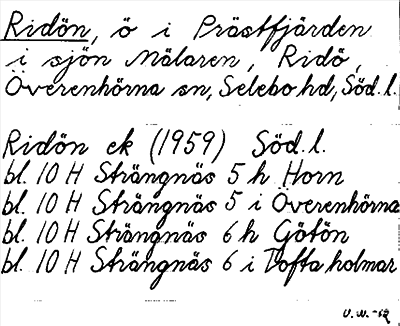 Ridön, ö i Prästfjärden
i sjön Mälaren, Ridö,
Överenhörna sn, Selebo hd, Söd. l.
Ridön ek (1959) Söd. l.
bl. 10 H Strängnäs 5 h Horn
bl. 10 H Strängnäs 5 i Överenhörna
bl. 10 H Strängnäs 6 h Götön
bl. 10 H Strängnäs 6 i Tofta holmar